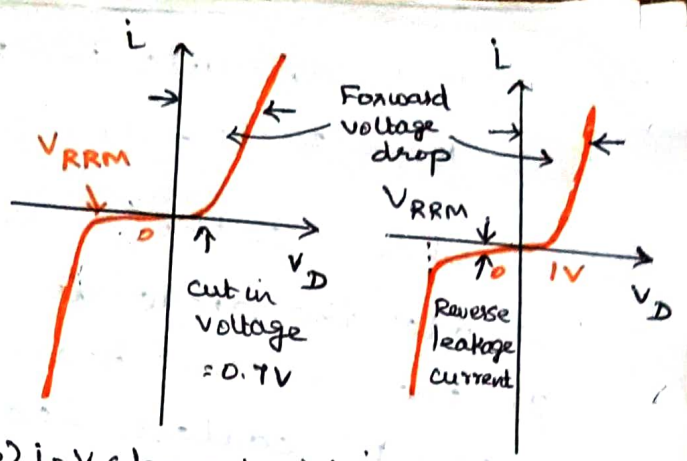 i
V RRM
0
cut in
voltage
= 0.7V
V D
Forward
voltage
drop
i
V RRM
0
1V
V D
Reverse
leakage
current